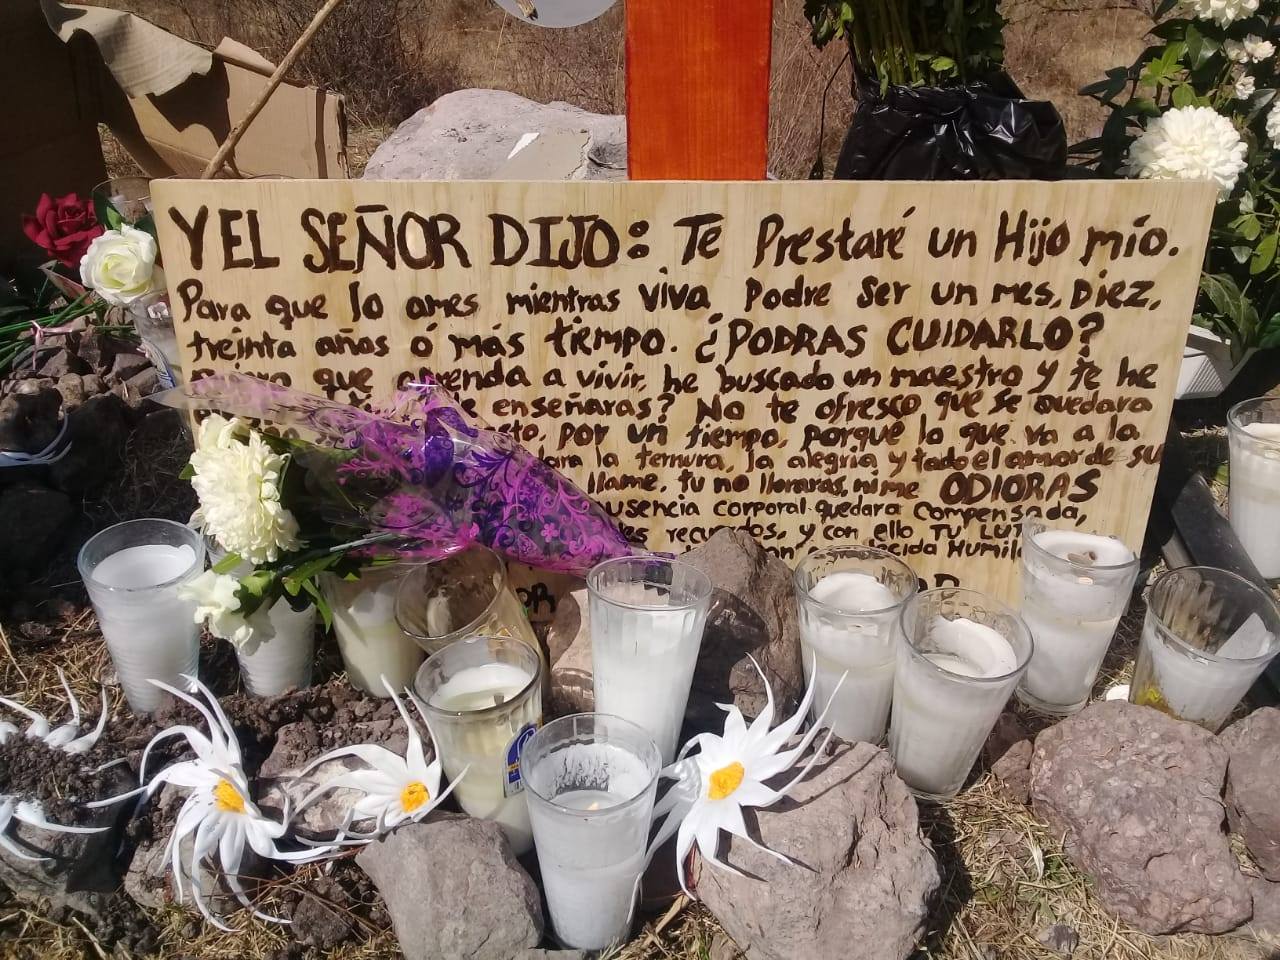 Y EL SEÑOR DIJO: Té Prestaré un Hijo mío.
Para que lo ames mientras viva, Podre ser un mes, Diez,
treinta años ó más tiempo. ¿PODRAS CUIDARLO?
que aprenda a vivir, he buscado un maestro y te he
enseñaras? No te ofresco que se quedara
por un tiempo, porque lo que va a la
la ternura, la alegria y todo el amor de su
llame, tu no lloraras, ni me ODIORAS
ausencia corporal quedara compensada,
recuerdos, y con ello TU